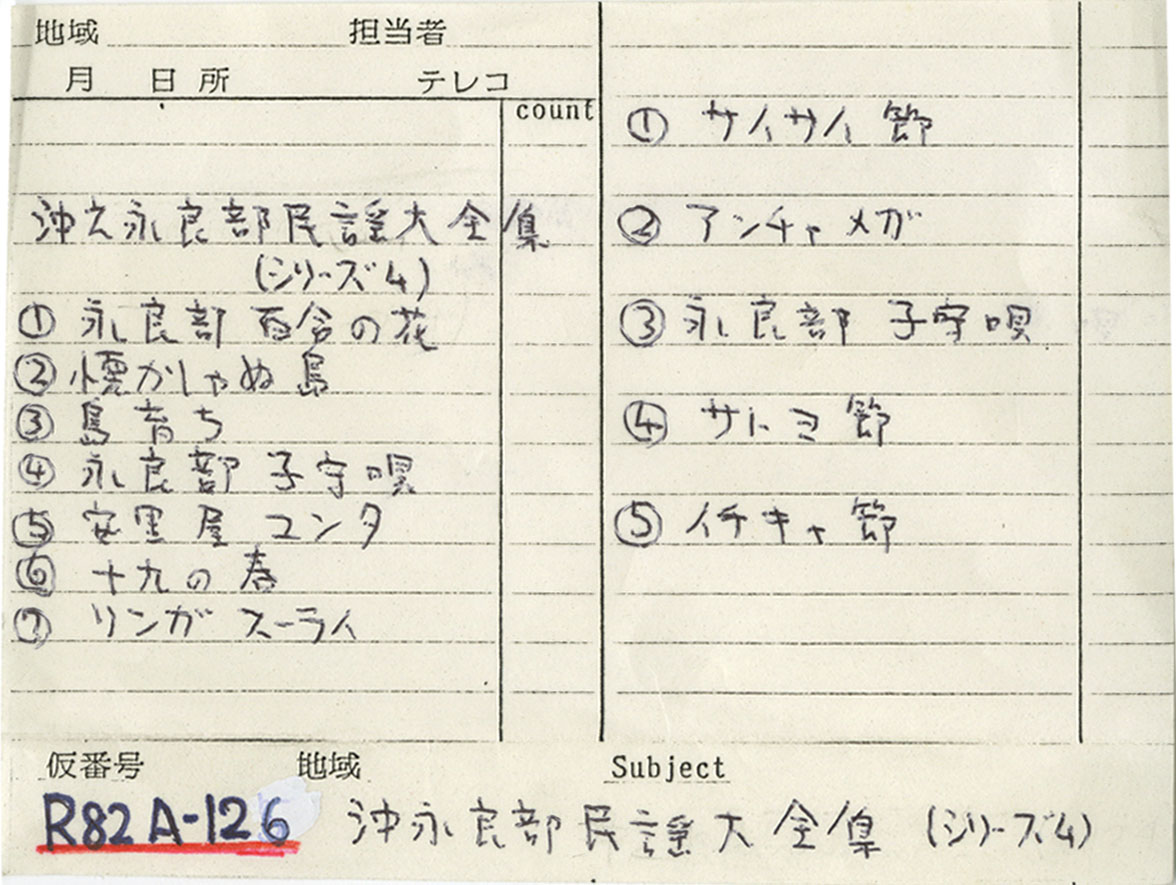 地域 担当者
月 日 所 テレコ
count
沖之永良部民謡大全集
(シリーズ4)
① 永良部 百合の花
② 懐かしゃぬ島
③ 島育ち
④ 永良部 子守唄
⑤ 安里屋 ユンタ
⑥ 十九の春
⑦ リンガ スーライ
① サイサイ 節
② アンチャメガ
③ 永良部 子守唄
④ サトミ 節
⑤ イチキャ 節
仮番号 地域 Subject
R82A-126 沖永良部民謡大全集 (シリーズ4)